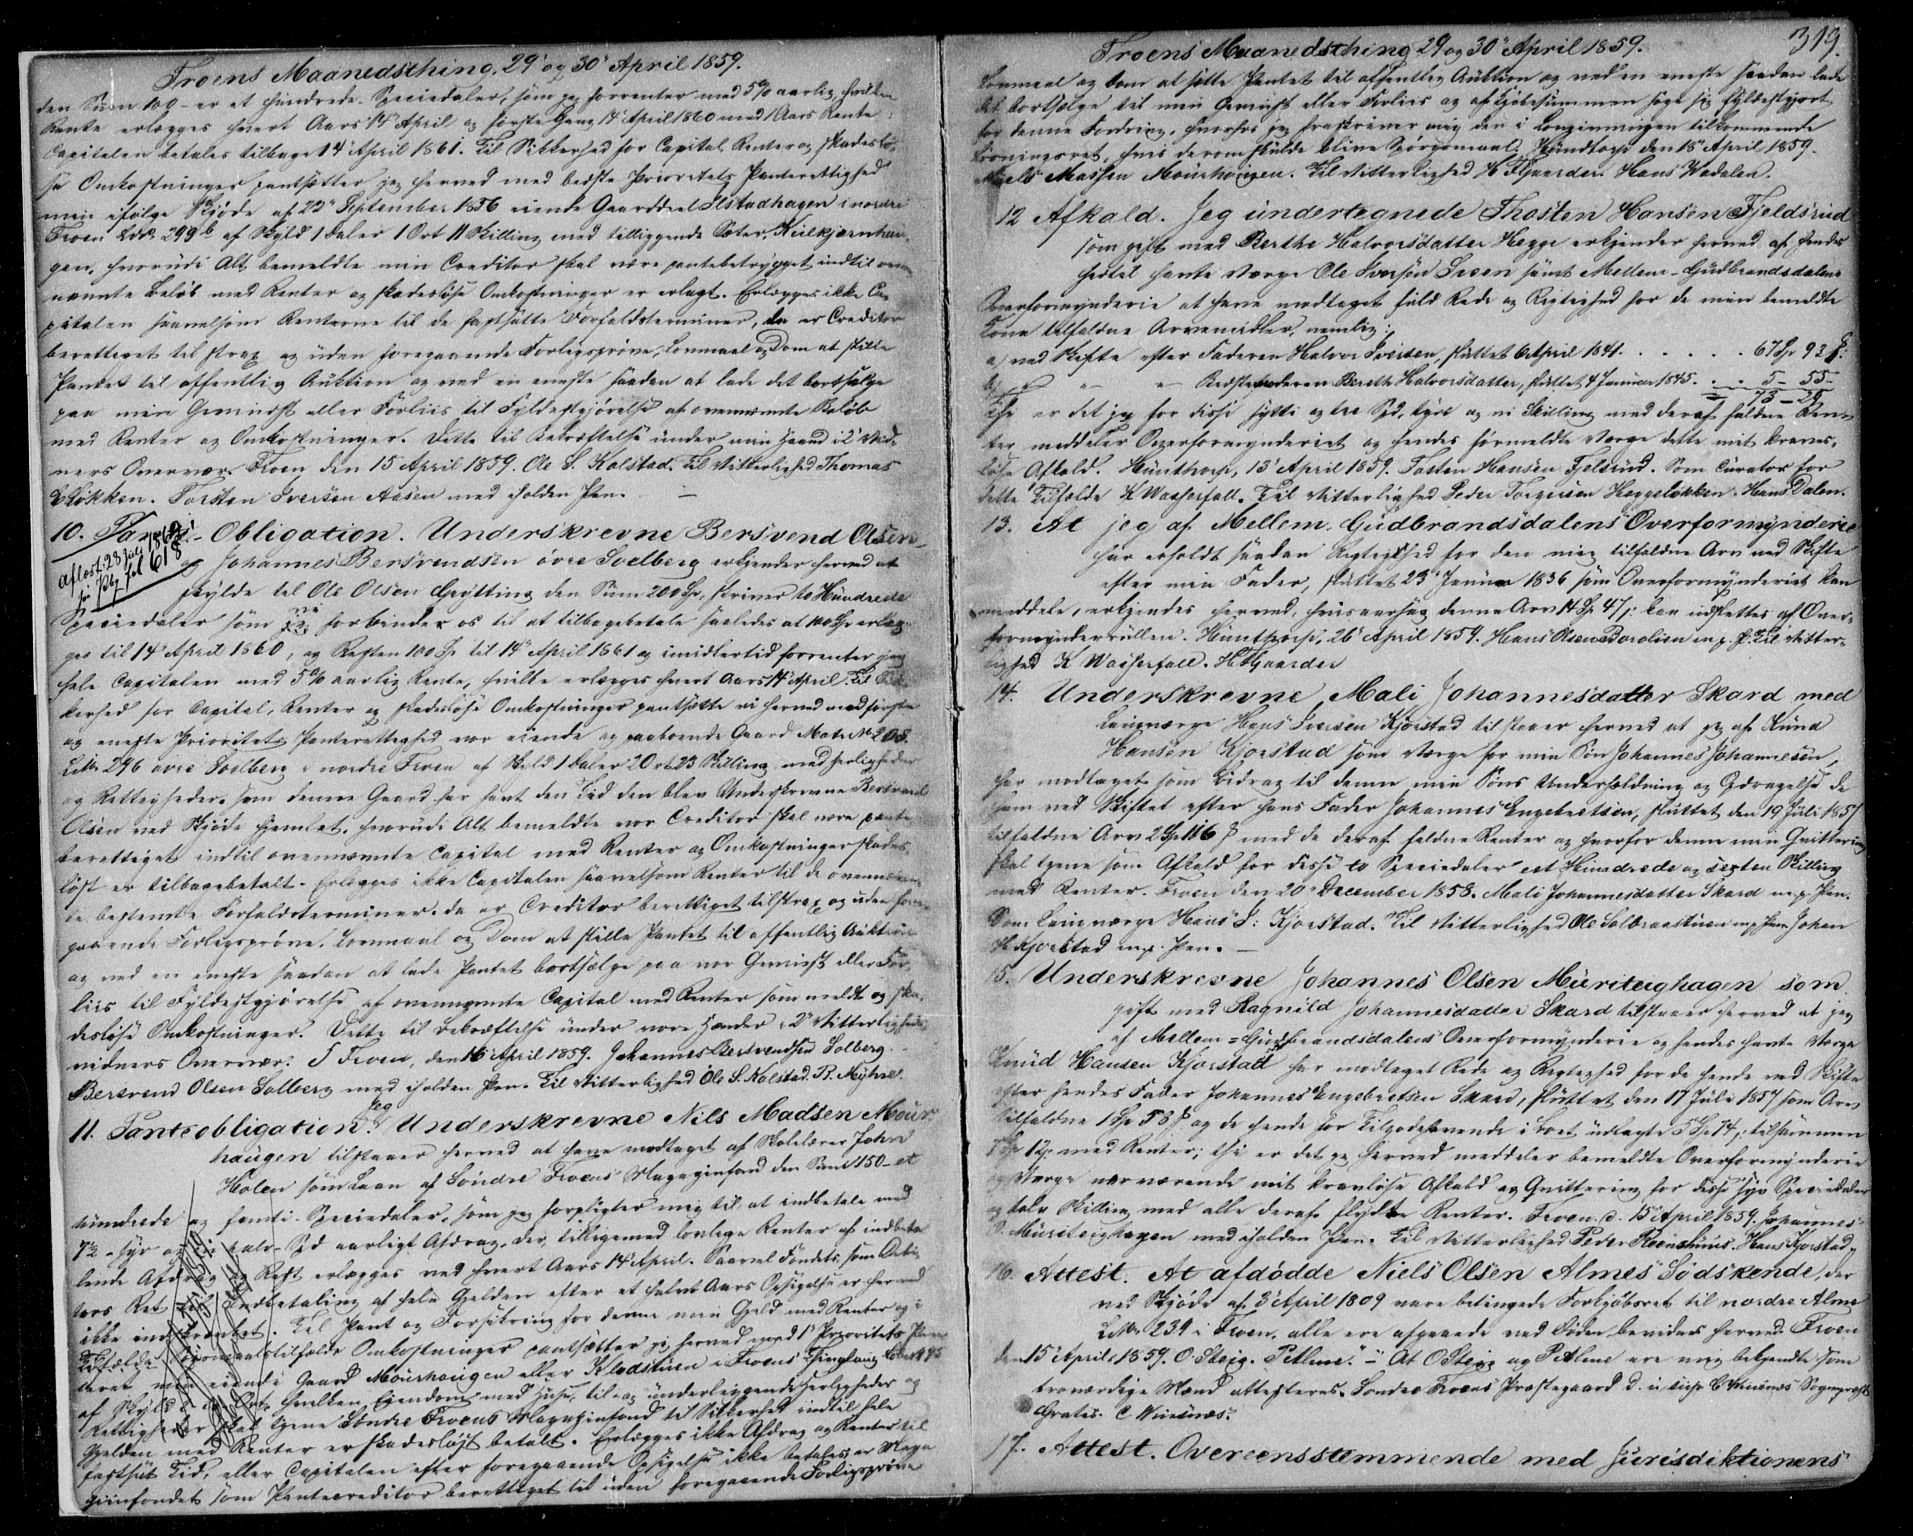 Froens Maanedsthing, 29 og 30 April 1859.
den Sum 100 - er et hundrede Speciedaler, som jeg forrenter med 5% aarlig, hvilken
Rente erlægges hvert Aars 14 April og første Gang 14 April 1860 med 1 Aars Rente
Capitalen betales tilbage 14 April 1861. Til Sikkerhed for Capital, Renter og skadeslø-
se Omkostninger pantsætter jeg herved med bedste Prioritets Panterettighed
min ifølge Skjøde af 22 September 1856 eiende Gaarddeel Ilstadhagen i nordre
Froen Lbr 299 b af Skyld 1 Daler 1 Ort 11 Skilling med tilliggende Sæter,
gen, hvorudi Alt bemeldte min Creditor skal være pantebetrygget indtil oven-
nævnte Beløb med Renter og skadesløse Omkostninger er erlagt. Erlægges ikke Ca-
pitalen saavelsom Renterne til de fastsatte Forfaldsterminer, da er Creditor
berettiget til strax og uden foregaaende Forligsprøve, Lovmaal og Dom at stille
Pantet til offentlig Auktion og ved en eneste saadan at lade det bortsælge
paa min Gevinst eller Forliis til Fyldestgjørelse af ovennævnte Beløb
med Renter og Omkostninger. Dette til Bekræftelse under min Haand i 2 Vid-
ners Overvær. Froen den 15 April 1859. Ole S. Kolstad. Til Vitterlighed Thomas
Løkken. Torsten Iversen Aasen med iholden Pen. —
10. Pante-Obligation. Underskrevne Bersvend Olsen
og Johannes Bersvendsen øvre Soelberg erkjender herved at
skylde til Ole Olsen Grytting den Sum 200 Sp, skriver to Hundrede
Speciedaler som vi forbinder os til at tilbagebetale saaledes at 100 Sp erlæg-
ges til 14 April 1860, og Resten 100 Sp til 14 April 1861 og imidlertid forrenter jeg
hele Capitalen med 5% aarlig Rente, hvilke erlægges hvert Aars 14 April. Til Sik-
kerhed for Capital, Renter og skadesløse Omkostninger pantsætte vi herved med første
og eneste Prioritets Panterettighed vor eiende og paaboende Gaard Matr No 208
Lbr 296 øvre Soelberg i nordre Froen af Skyld 1 Daler 2 Ort 23 Skilling med herligheder
og Rettigheder som denne Gaard har havt den Tid den blev Underskrevne Bersvend
Olsen ved Skjøde hjemlet, hvorudi Alt bemeldte vor Creditor skal være pante-
berettiget indtil ovennævnte Capital med Renter og Omkostninger skades-
løst er tilbagebetalt. Erlægges ikke Capitalen saavelsom Renter til de ovennævn-
te bestemte Forfaldsterminer, da er Creditor berettiget til strax og uden fore-
gaaende Forligsprøve, Lovmaal og Dom at stille Pantet til offentlig Auktion
og ved en eneste saadan at lade Pantet bortsælge paa vor Gevinst eller For-
liis til Fyldestgjørelse af ovennævnte Capital med Renter som meldt og ska-
desløse Omkostninger. Dette til Bekræftelse under vore Hænder i 2 Vitterligheds-
vidners Overvær. Froen, den 16 April 1859. Johannes Bersvendsen Solberg.
Bersvend Olsen Solberg med iholden Pen. Til Vitterlighed Ole S. Kolstad. P. Myhre.
11. Panteobligation. Jeg Underskrevne Nils Madsen Mour-
haugen tilstaaer herved at have modtaget af Skolelærer Johan
Holen som Laan af Søndre Froens Magazinfond den Sum 150 - et
hundrede og femti Speciedaler, som jeg forpligter mig til at indbetale med
7½ - syv og halv Spd aarligt Afdrag, der tilligemed lovlige Renter af indbeta-
lende Afdrag og Rest erlægges ved hvert Aars 14 April. Saavel Fondets som Debi-
tors Ret til Indbetaling af hele Gjelden efter et halvt Aars Opsigelse er herved
ikke indskrænket. Til Pant og Forsikring for denne min Gjeld med Renter og i
Tilfælde Søgsmaalstilfælde Omkostninger pantsætter jeg herved med 1ste Prioritets Pan-
teret min eiende Gaard Mourhaugen eller Kladstuen i Froens Thinglaug
af Skyld Ort, hvilken Eiendom med Huse, til- og underliggende Herligheder og
Rettigheder skal tjene Søndre Froens Magazinfond til Sikkerhed indtil hele
Gjelden med Renter er skadesløst betalt. Erlægges ikke Afdrag og Renter til
fastsat Tid, eller Capitalen efter foregaaende Opsigelse ikke betales, er Maga-
zinfondet som Pantecreditor berettiget til uden foregaaende Forligsprøve
Aflöst 28 Juli 1862
fol 618
Froens Maanedsthing 29 og 30 April 1859.
319.
Lovmaal og Dom at sætte Pantet til offentlig Auktion og ved en eneste saadan lade
det bortsælge til min Gevinst eller Forliis og af Kjøbesummen søge sig fyldestgjort
for denne Fordring, hvorhos jeg fraskriver mig den i Lovgivningen tilkommende
Løsningsret, hvis derom skulde blive Spørgsmaal. Hundtorp den 15 April 1859.
Niels Madsen Mourhougen. Til Vitterlighed H Flaarder. Hans Vadalen.
12 Afkald. Jeg undertegnede Thosten Hansen Fjeldsrud
som gift med Berthe Halvorsdatter Hegge erkjender herved af hendes
hidtil havte Værge Ole Iversøn Sveen samt Mellem-Gudbrandsdalens
Overformynderie at have modtaget fuld Rede og Rigtighed for de min bemeldte
Kone tilfaldne Arvemidler, nemlig:
a, ved Skifte efter Faderen Halvor Iversen, sluttet 6 April 1841. . . . . . . 67 Sp 93 ß.
b, " " " Bedstemoderen Bereth Halvorsdatter, sluttet 4 Januar 1845. . . . 5 - 55 -
= 73 - 29
Thi er det jeg for disse sytti og tre Spd, tyve og ni Skilling med deraf faldne Ren-
ter meddeler Overformynderiet og hendes formeldte Værge dette mit kraves-
løse Afkald. Hunthorp, 15 April 1859. Tosten Hansen Fjelsrud. Som Curator for
dette Tilfælde K Wasserfall. Til Vitterlighed Peder Torgersen Heggeløkken. Hans Dalen.
13. At jeg af Mellem-Gudbrandsdalens Overformynderie
har erholdt saadan Rigtighed for den mig tilfaldne Arv ved Skifte
efter min Fader, sluttet 23 Januar 1836 som Overformynderiet kan
meddele, erkjendes herved, hvisaarsag denne Arv 14 Sp 47 ß kan udslettes af Over-
formynderrullen. Hunthorp, 26 April 1859. Hans Olsen Borolien m. p. P. Til Vitter-
lighed K Wasserfall. H Flaarder
14. Underskrevne Mali Johannesdatter Skard med
Laugværge Hans Iversen Kjørstad tilstaaer herved at jeg af Knud
Hansen Kjorstad som Værge for min Søn Johannes Johannesen,
har modtaget som Bidrag til denne min Søns Underholdning og Opdragelse de
ham ved Skiftet efter hans Fader Johannes Engebretsen, sluttet den 19 Juli 1857
tilfaldne Arv 2 Sp 116 ß med de deraf faldne Renter og hvorfor denne min Qvittering
skal tjene som Afkald for disse to Speciedaler et Hundrede og sexten Skilling
med Renter. Froen den 20 December 1858. Mali Johannesdatter Skard m. p. Pen.
Som Laugværge Hans I: Kjorstad. Til Vitterlighed Ole Solbraastuen m p Pen Johan
H Kjorstad m. p. Pen. —
15. Underskrevne Johannes Olsen Muriteighagen som
gift med Ragnild Johannesdatter Skard tilstaaer herved at jeg
af Mellem-Gudbrandsdalens Overformynderie og hendes havte Værge
Knud Hansen Kjorstad har modtaget Rede og Rigtighed for de hende ved Skifte
efter hendes Fader Johannes Engebretsen Skard, sluttet den 17 Juli 1857 som Arv
tilfaldne 1 Sp 58 ß og de hende for Tilgodehavende i Boet udlagte 5 Sp 74, tilsammen
7 Sp 12 ß med Renter; thi er det jeg herved meddeler bemeldte Overformynderie
og Værge nærværende mit kravløse Afkald og Qvittering for disse syv Speciedaler
og tolv Skilling med alle deraf flydte Renter. Froen d. 15 April 1859. Johannes
O. Muriteighagen med iholden Pen. Til Vitterlighed Peder Hans Kjorstad.
16. Attest. At afdødde Niels Olsen Almes Sødskende, der
ved Skjøde af 3 April 1809 vare betingede Forkjøbsret til nordre Alme
LNo 239 i Froen, alle ere afgaaede ved Døden bevidnes herved. Froen
den 15 April 1859. O. Steig. P. Alme. — At O Steig og P Alme ere mig bekjendte som
troværdige Mænd attesteres. Søndre Froens Præstegaard d. u. supr. C Winsnes Sognepræst
Gratis. C Winsnes.
17. Attest. Overeensstemmende med Jurisdiktionens